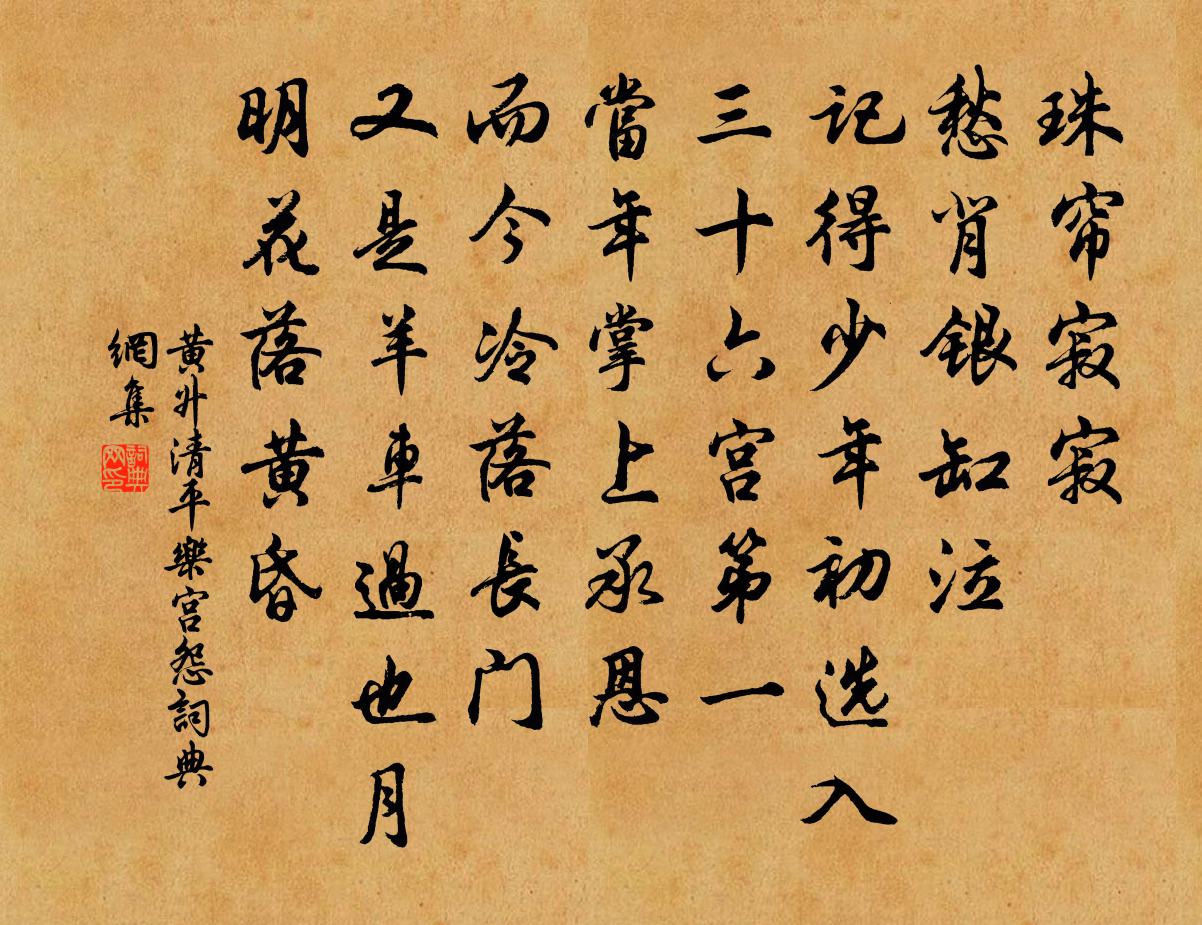 珠帘寂寂
愁背银缸泣
记得少年初选入
三十六宫第一
當年掌上承恩
而今冷落長门
又是羊車過也月
明花落黄昏
黄升清平樂宫怨詞典
網集
詞典
网印